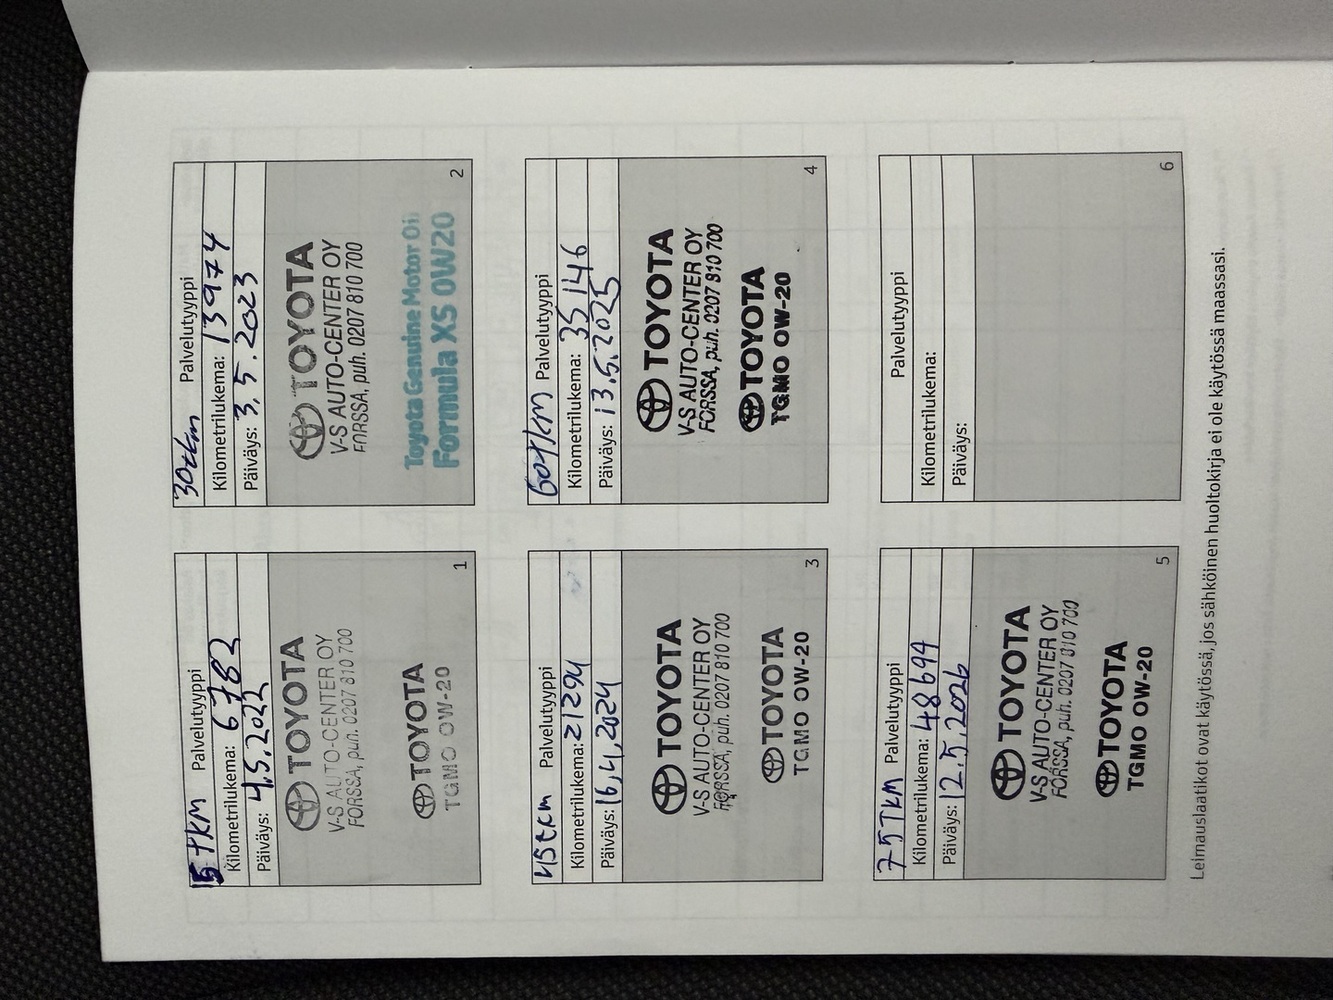 15 TKM Palvelutyyppi
Kilometrilukema: 6782
Päiväys: 4.5.2022
TOYOTA
V-S AUTO-CENTER OY
FORSSA, puh. 0207 810 700
TOYOTA
TGMO OW-20
1
30tkm Palvelutyyppi
Kilometrilukema: 13974
Päiväys: 3.5.2023
TOYOTA
V-S AUTO-CENTER OY
FORSSA, puh. 0207 810 700
Toyota Genuine Motor Oil
Formula XS 0W20
2
45tkm Palvelutyyppi
Kilometrilukema: 21294
Päiväys: 16.4.2024
TOYOTA
V-S AUTO-CENTER OY
FORSSA, puh. 0207 810 700
TOYOTA
TGMO OW-20
3
60tkm Palvelutyyppi
Kilometrilukema: 35146
Päiväys: 13.5.2025
TOYOTA
V-S AUTO-CENTER OY
FORSSA, puh. 0207 810 700
TOYOTA
TGMO OW-20
4
75TKM Palvelutyyppi
Kilometrilukema: 48699
Päiväys: 12.5.2026
TOYOTA
V-S AUTO-CENTER OY
FORSSA, puh. 0207 810 700
TOYOTA
TGMO OW-20
5
Palvelutyyppi
Kilometrilukema:
Päiväys:
6
Leimauslaatikot ovat käytössä, jos sähköinen huoltokirja ei ole käytössä maassasi.